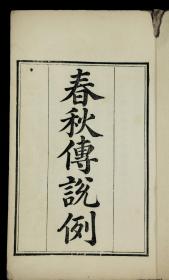 春秋傳說例